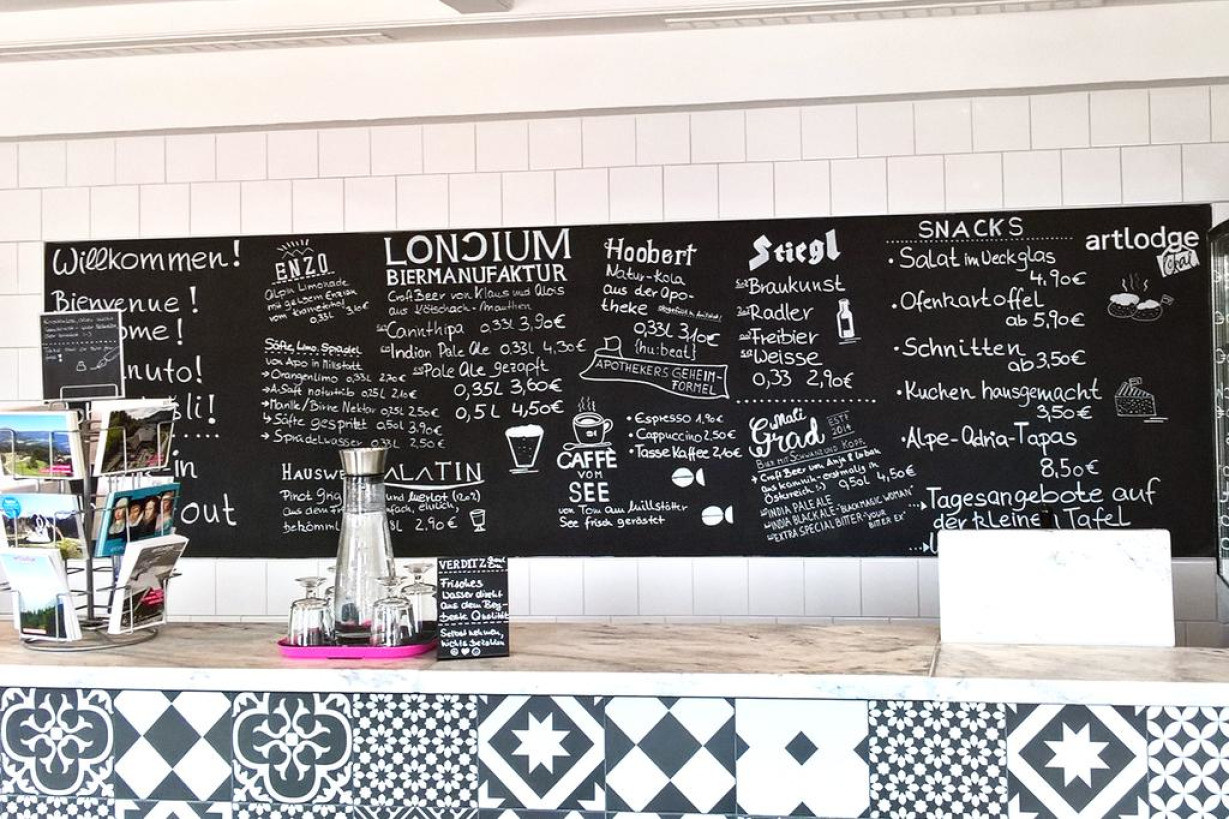 Willkommen!
Bienvenue!
ome!
nuto!
li!
in
out
ENZO
Alpin Limonade
mit gelbem Enzian
0,33l 3,10€
Säfte, Limo, Sprudel
von Arpo in Millstatt
→ Orangenlimo 0,33l 2,70€
→ A-Saft naturtrüb 0,25l 2,10€
→ Marille/Birne Nektar 0,25l 2,50€
→ Säfte gespritzt 0,50l 3,90€
→ Sprudelwasser 0,33l 2,50€
HAUSWE ALATIN
Pinot Grig und Merlot (12,02)
aus dem Fr fach, ehrlich,
bekömml 8l 2,90€
LONCIUM
BIERMANUFAKTUR
Craft Beer von Klaus und Alois
aus Kötschach-Mauthen
Carinthipa 0,33l 3,90€
Indian Pale Ale 0,33l 4,30€
Pale Ale gezapft
0,35l 3,60€
0,5l 4,50€
CAFFÈ
VOM
SEE
von Tom am Millstätter
See frisch geröstet
• Espresso 1,90€
• Cappuccino 2,50€
• Tasse Kaffee 2,10€
Hoobert
Natur-Kola
aus der Apo-
theke
0,33l 3,10€
{hu:beat}
APOTHEKERS GEHEIM-
FORMEL
Stiegl
Braukunst
Radler
Freibier
Weisse
0,33 2,90€
Mali
Grad
ESTD
2014
BIER MIT SCHWANZ UND KOPF.
→ Craft Beer von Anja & Urbah
aus Kamnik - erstmalig in
Österreich :) 0,50l 4,50€
INDIA PALE ALE
INDIA BLACK ALE "BLACK MAGIC WOMAN"
EXTRA SPECIAL BITTER "YOUR
BITTER EX"
SNACKS
• Salat im Weckglas
4,90€
• Ofenkartoffel
ab 5,90€
• Schnitten
ab 3,50€
• Kuchen hausgemacht
3,50€
• Alpe-Adria-Tapas
8,50€
...Tagesangebote auf
der kleinen Tafel
artlodge
VERDITZ
Frisches
Wasser direkt
aus dem Berg-
beste Qualität
Selbst nehmen,
nichts bezahlen